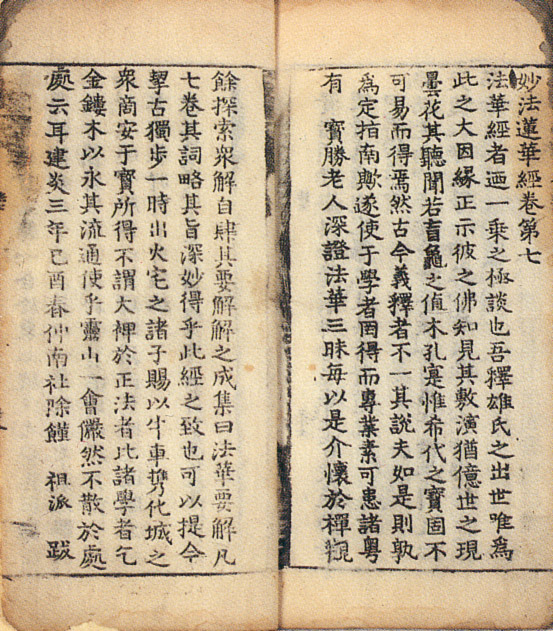 妙法蓮華經卷第七
法華經者迺一乘之極談也吾釋雄氏之出世唯爲
此之大因緣正示彼之佛知見其敷演猶億世之現
曇花其聽聞若盲龜之值木孔寔惟希代之寶固不
可易而得焉然古今義釋者不一其說夫如是則孰
爲定指南歟遂使于學者罔得而專業素可患諸粵
有 寶勝老人深證法華三昧每以是介懷於禪觀
餘探索衆解自肆其要解解之成集曰法華要解凡
七卷其詞略其旨深妙得乎此經之致也可以提今
挈古獨步一時出火宅之諸子賜以牛車携化城之
衆商安于寶所得不謂大裨於正法者比諸學者乞
金鏤木以永其流通使乎靈山一會儼然不散於處
處云耳建炎三年己酉春仲南社除饉 祖派 跋